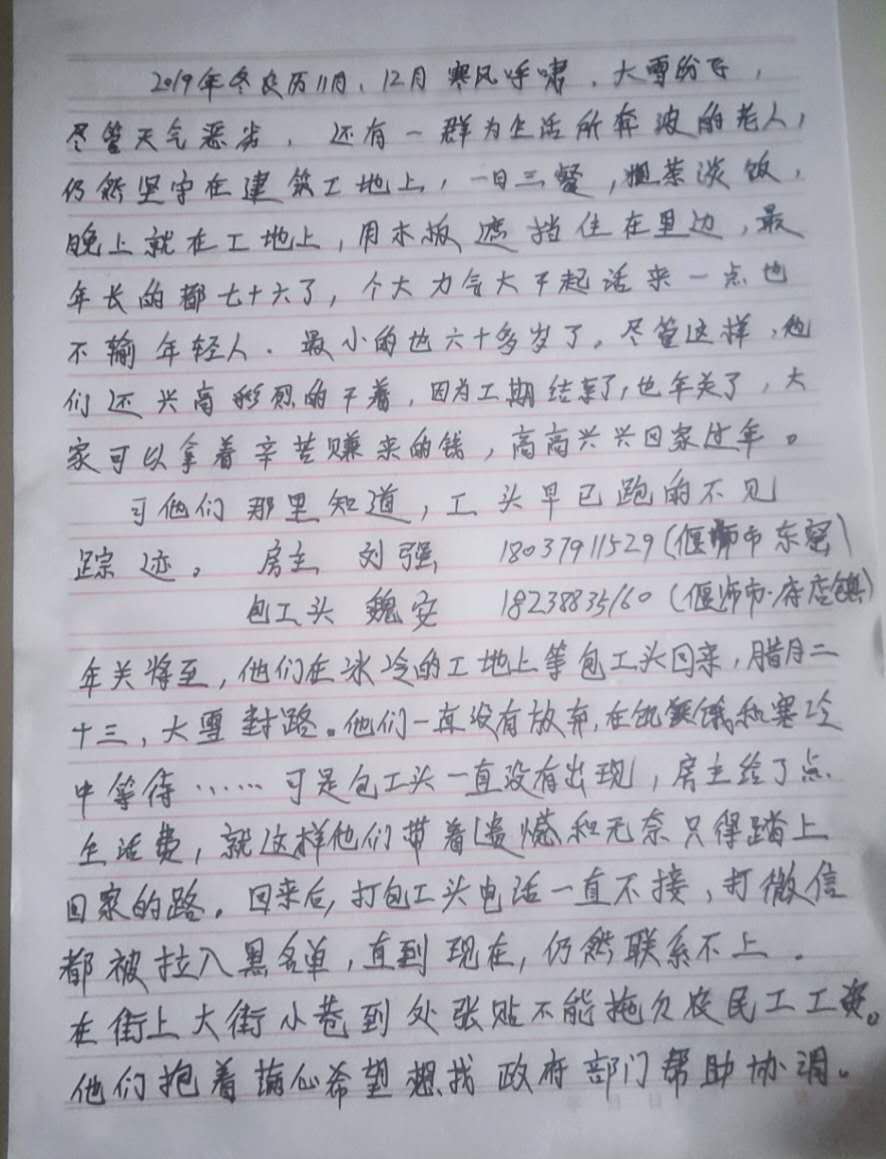 2019年冬农历11月、12月寒风呼啸，大雪纷飞，
尽管天气恶劣，还有一群为生活所奔波的老人，
仍然坚守在建筑工地上，一日三餐，粗茶淡饭，
晚上就在工地上，用木板遮挡住在里边，最
年长的都七十六了，个大力气大干起活来一点也
不输年轻人．最小的也六十多岁了。尽管这样，他
们还兴高彩烈的干着，因为工期结束了，也年关了，大
家可以拿着辛苦赚来的钱，高高兴兴回家过年。
可他们那里知道，工头早已跑的不见
踪迹。房主 刘强 18037911529（偃师市东窑）
包工头 魏安 18238835160（偃师市·府店镇）
年关将至，他们在冰冷的工地上等包工头回来，腊月二
十三，大雪封路。他们一直没有放弃，在饥饿和寒冷
中等待……可是包工头一直没有出现，房主给了点
生活费，就这样他们带着遗憾和无奈只得踏上
回家的路。回来后，打包工头电话一直不接，打微信
都被拉入黑名单，直到现在，仍然联系不上．
在街上大街小巷到处张贴不能拖欠农民工工资。
他们抱着满心希望想找政府部门帮助协调。